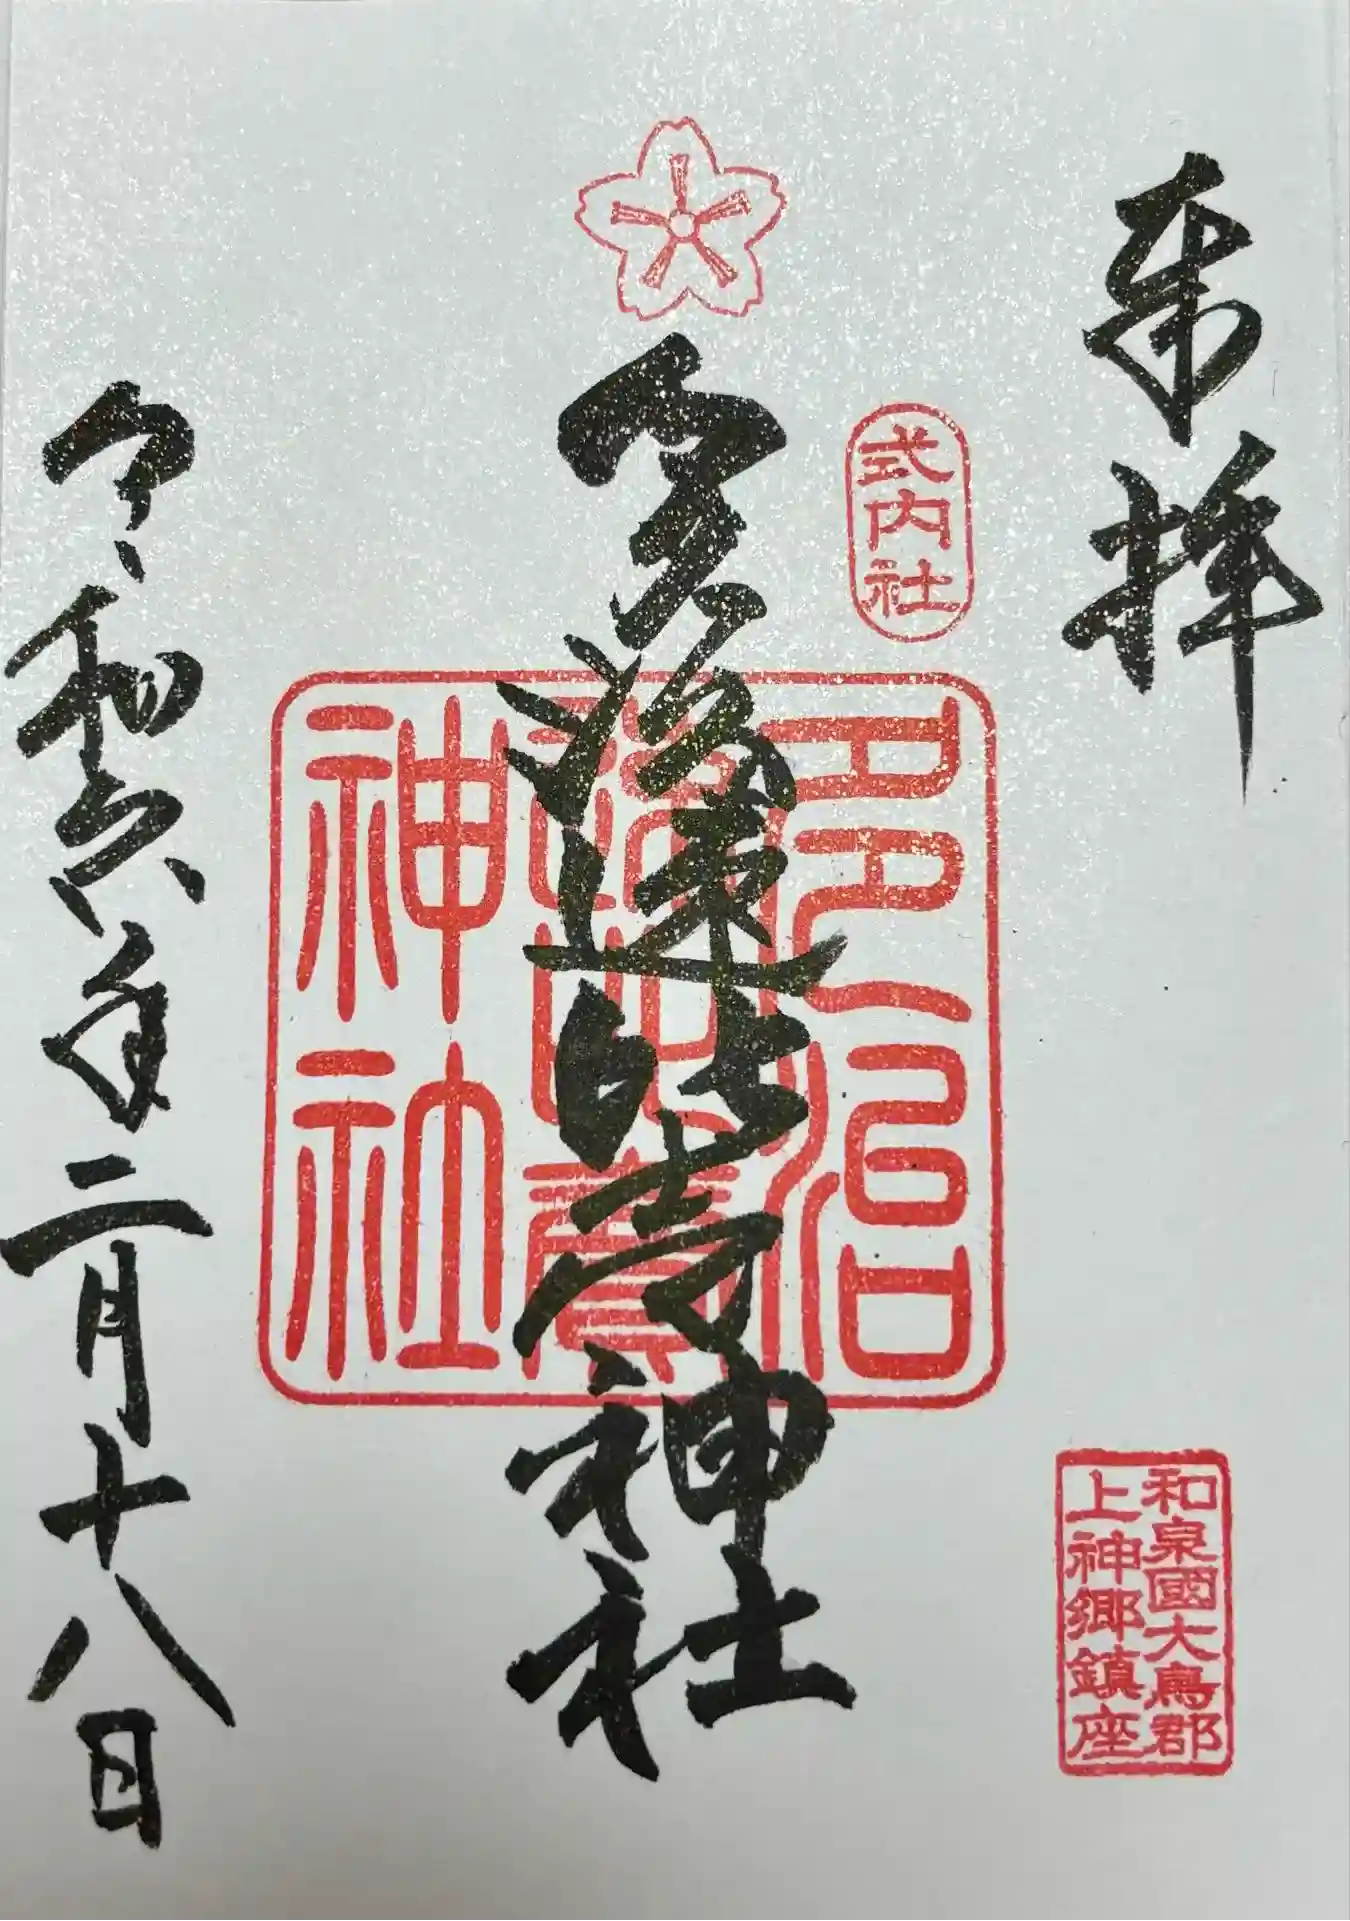 奉拝
式内社
和泉國大鳥郡
上神郷鎮座
多治速比売神社
多治
速比賣
神社
令和六年二月十八日